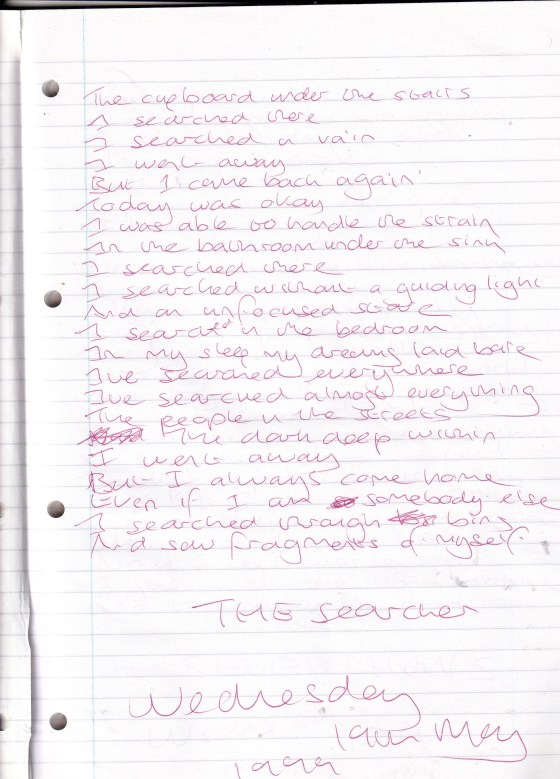 The cupboard under the stairs
I searched there
I searched a vain
I went away
But I came back again
Today was okay
I was able to handle the strain
In the bathroom under the sink
I searched there
I searched without a guiding light
And an unfocused state
I search in the bedroom
In my sleep my dreams laid bare
I've searched everywhere
I've searched almost everything
The people in the streets
The dark deep within
I went away
But I always come home
Even if I am somebody else
I searched through bins
And saw fragments of myself.
THE searcher
Wednesday
19th May
1999